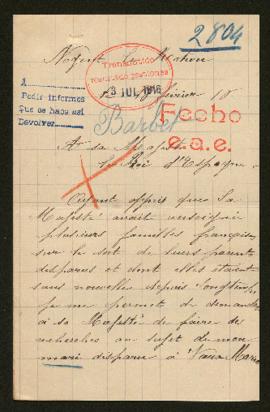 2804
Nogent
Transmitido
3 JUL. 1916
A
Pedir informes
que se haga así
Devolver.
Fecho
e.a.e.
Barbet
A sa Majesté
le Roi d'Espagne
Ayant appris que Sa
Majesté avait renseigné
plusieurs familles françaises
sur le sort de leurs parents
disparus et dont elles étaient
sans nouvelles depuis longtemps
je me permet de demander
à sa Majesté de faire des
recherches au sujet de mon
mari disparu à